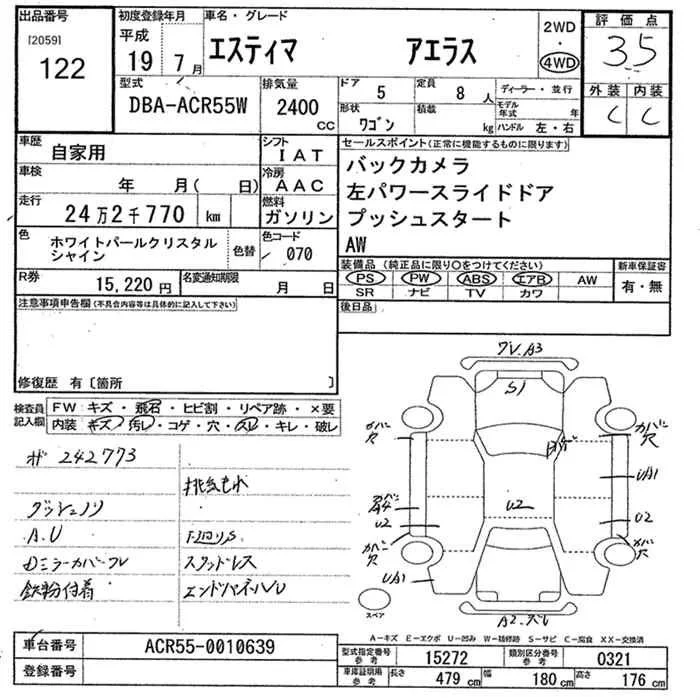 出品番号
[2059]
122
初度登録年月
平成
19 7月
車名・グレード
エスティマ アエラス
2WD
・
4WD
評価点
3.5
外装 内装
C C
型式
DBA-ACR55W
排気量
2400
CC
ドア
5
定員
8 人
形状
ワゴン
積載
kg
ディーラー・並行
モデル年式 年
ハンドル 左・右
車歴
自家用
シフト
IAT
車検
年 月( 日)
冷房
AAC
走行
24万2千770 km
燃料
ガソリン
色
ホワイトパールクリスタル
シャイン
色替
色コード
070
R券
15,220円
名変通知期限
月 日
セールスポイント(正常に機能するものに限ります)
バックカメラ
左パワースライドドア
プッシュスタート
AW
装備品 (純正品に限り○をつけてください)
PS PW ABS エアB AW
SR ナビ TV カワ
新車保証書
有・無
後日品
注意事項申告欄(不具合内容等は具体的に記入して下さい)
修復歴 有〔箇所 〕
検査員
記入欄
FW: キズ・飛石・ヒビ割・リペア跡・×要
内装 キズ・汚レ・コゲ・穴・スレ・キレ・破レ
242773
排気もれ
A.U
Dミラーカバーワレ
スタッドレス
鉄粉付着
S1
U2
A4
U2
UA1
UA1
U2
スペア
A-キズ E-エクボ U-凹み W-補修跡 S-サビ C-腐食 XX-交換済
車台番号
ACR55-0010639
登録番号
型式指定番号
参考
15272
類別区分番号
参考
0321
車庫証明用
参考
長さ 479 cm
幅 180 cm
高さ 176 cm